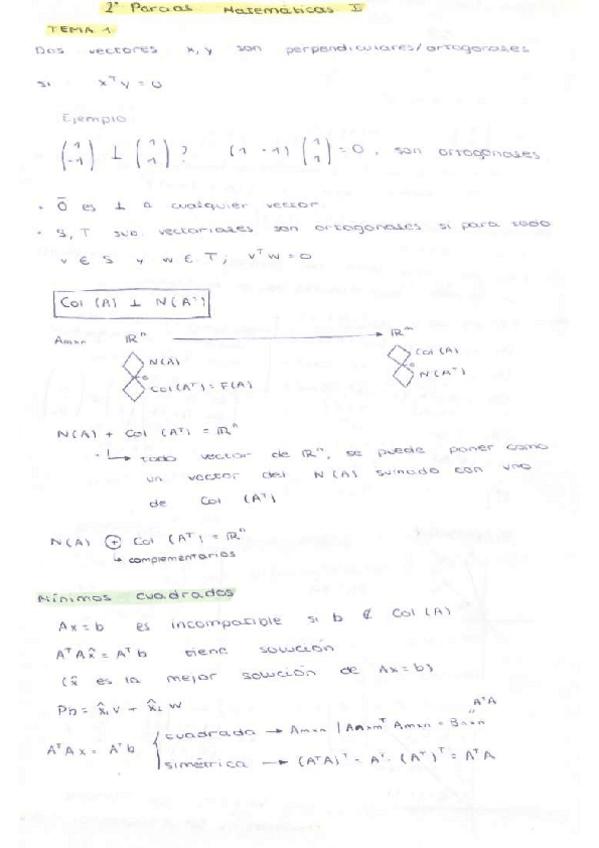 2º Parcial Matemáticas II
TEMA 1
Dos vectores x, y son perpendiculares/ortogonales
si xᵀy = 0
Ejemplo
(1 -1) ⊥ (1 1) ? (1 -1) (1 1) = 0, son ortogonales
· 0̄ es ⊥ a cualquier vector.
· S, T sub. vectoriales son ortogonales si para todo
v ∈ S y w ∈ T; vᵀw = 0
Col (A) ⊥ N(Aᵀ)
Amxn ℝⁿ → ℝᵐ
N(A) Col (A)
0 0
Col(Aᵀ) = F(A) N(Aᵀ)
N(A) + Col (Aᵀ) = ℝⁿ
↳ todo vector de ℝⁿ, se puede poner como
un vector del N(A) sumado con uno
de Col (Aᵀ)
N(A) ⊕ Col (Aᵀ) = ℝⁿ
↳ complementarios
Mínimos cuadrados
Ax = b es incompatible si b ∉ Col (A)
AᵀAx̂ = Aᵀb tiene solución
(x̂ es la mejor solución de Ax = b)
Pb = x̂₁v + x̂₂w
AᵀA
"
cuadrada → Amxn | Anxmᵀ Amxn = Bnxn
AᵀAx = Aᵀb {
simétrica → (AᵀA)ᵀ = Aᵀ · (Aᵀ)ᵀ = AᵀA